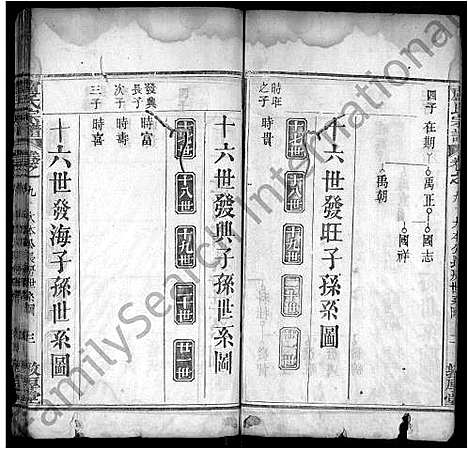 四子 在期 禹正 國志
國祥
禹朝
十六世發旺子孫世系圖
十七世 十八世 十九世 二十世 廿一世
時旺之子 時貴
十六世發興子孫世系圖
十七世 十八世 十九世 二十世 廿一世
發興長子 時富
次子 時壽
三子 時喜
十六世發海子孫世系圖
氏宗譜 卷之九 三 敦厚堂
FamilySearch International